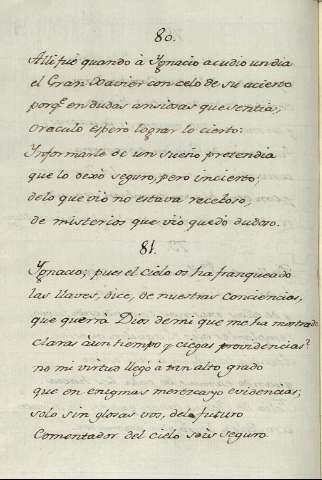 80.
Alli fué quando à Ygnacio acudio un dia
el Gran Xavier con celo de su acierto
porq̃ en dudas ansiosas que sentia,
oraculo esperò lograr lo cierto:
Ynformarle de un sueño pretendia
que lo dexò seguro, pero incierto;
de lo que viò no estava receloso,
de misterios que viò quedò dudoso.
81.
Ygnacio; pues el cielo os ha franqueado
las llaves, dice, de nuestras conciencias,
que querrà Dios de mi que me ha mostrado
claras à un tiempo y ciegas providencias?
no mi virtud llegò à tan alto grado
que en enigmas merezca yo evidencias;
solo sin glosas vos, del futuro
Comentador del cielo sois seguro.